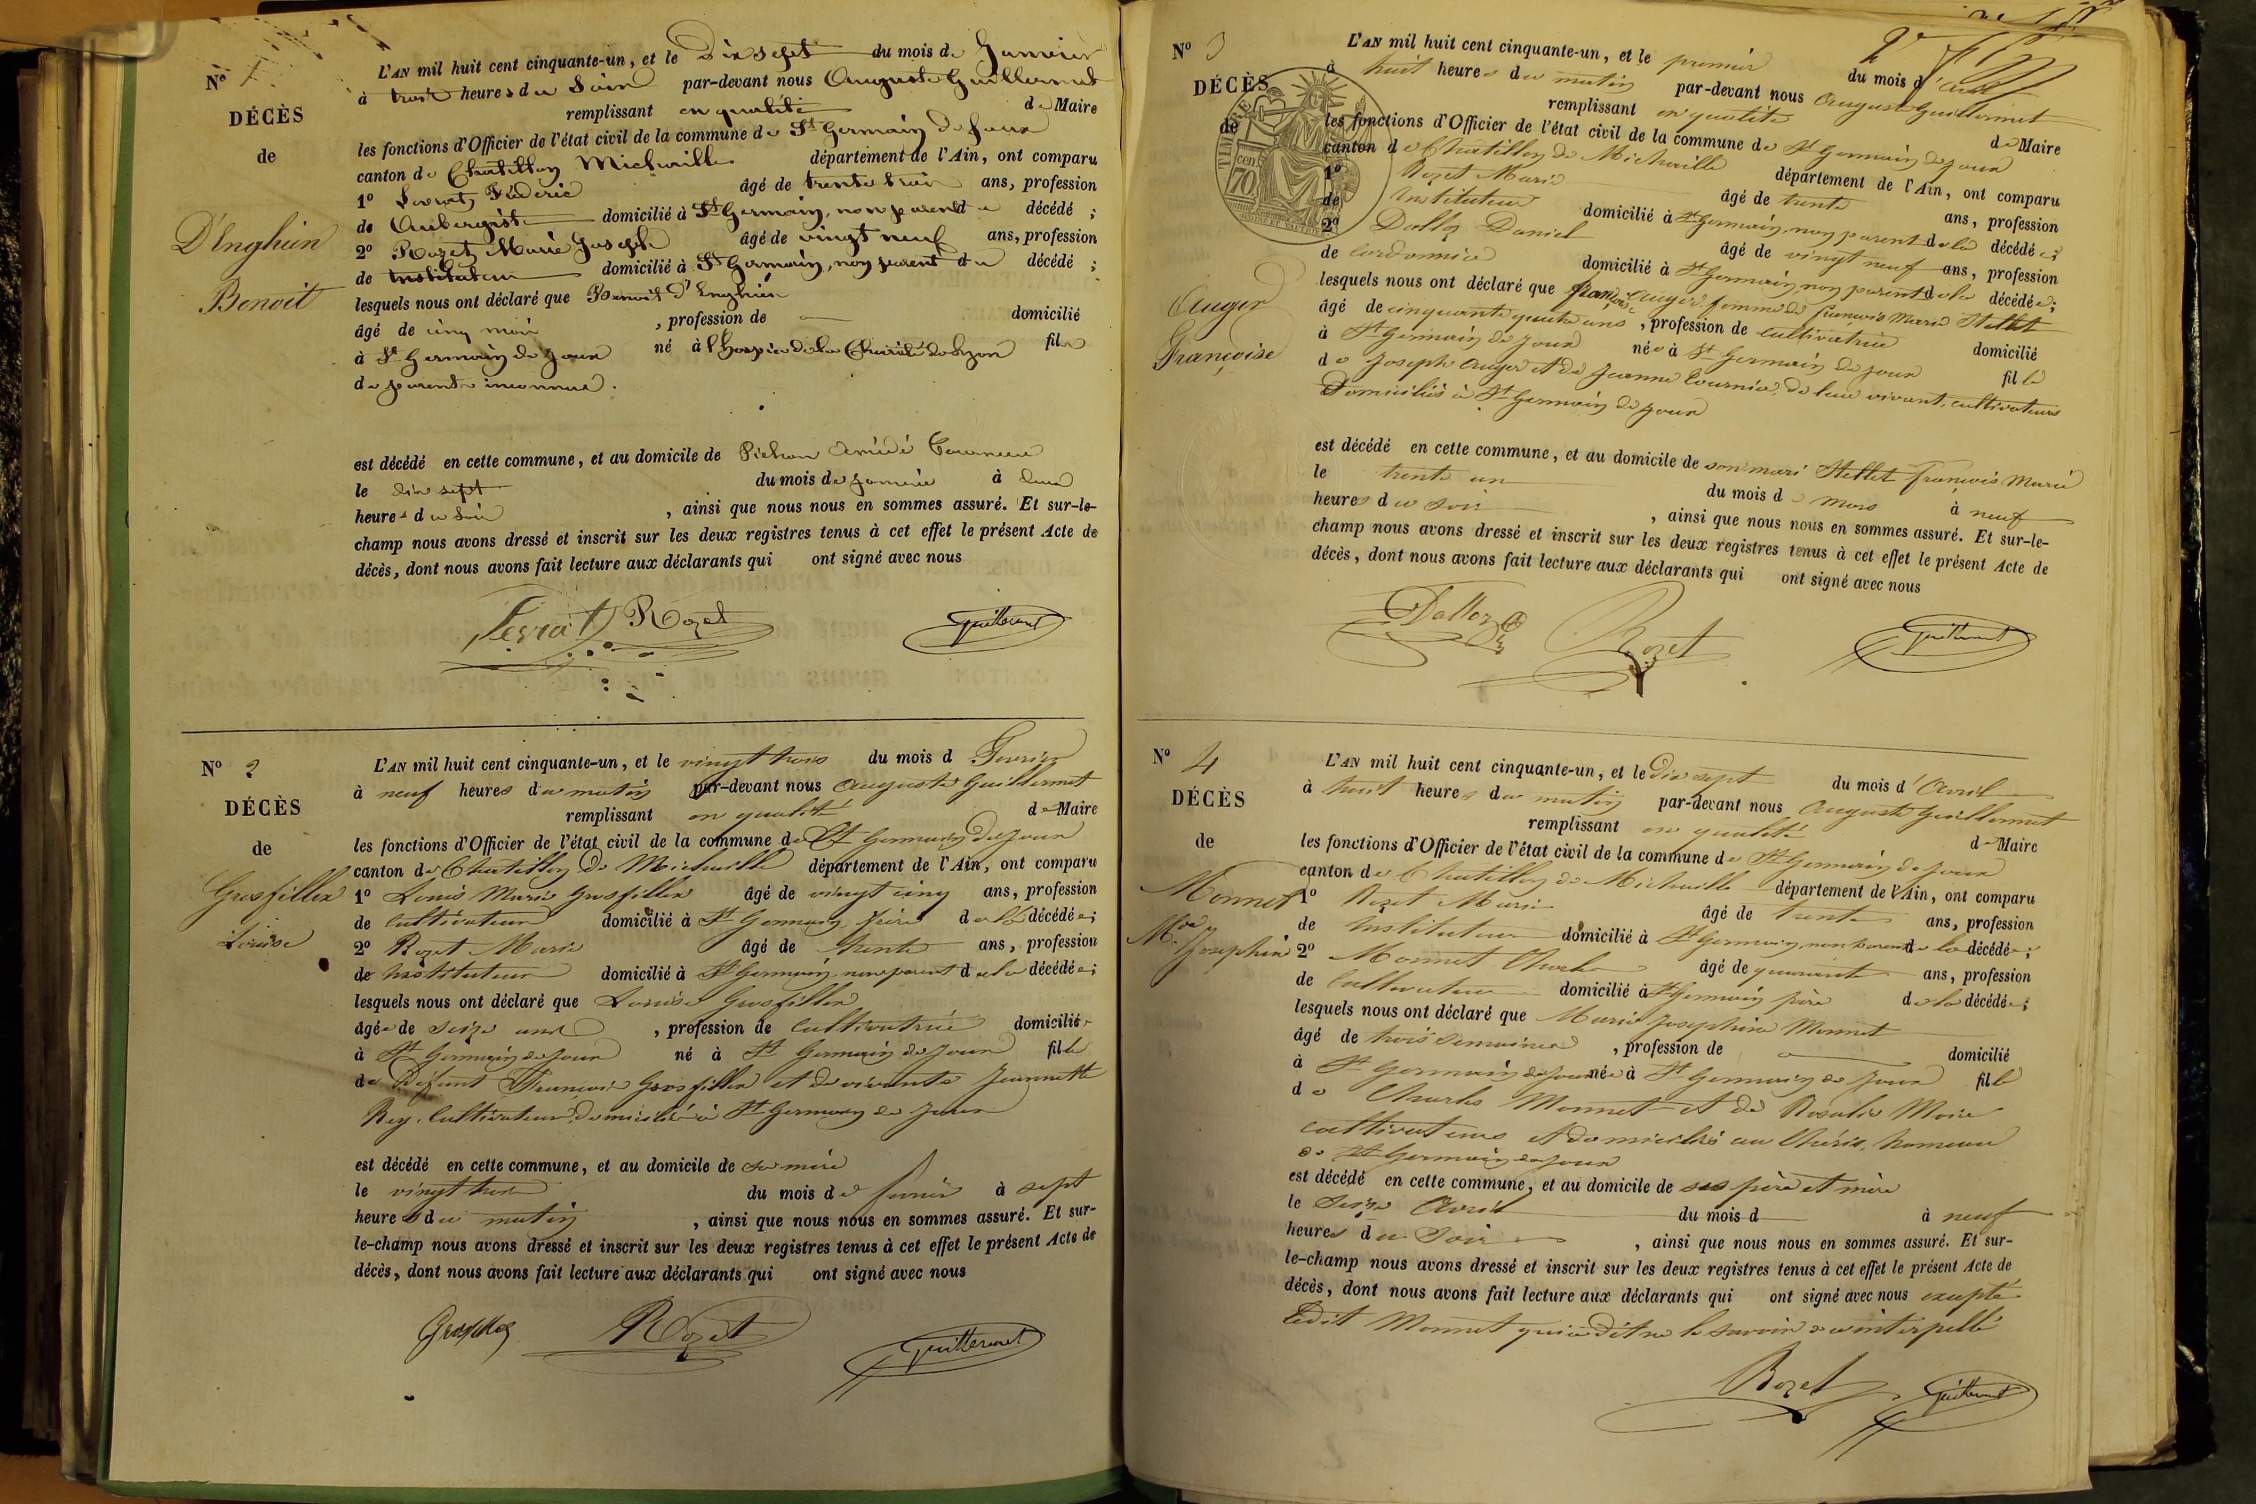 N° 1
DÉCÈS
de
D'Enghien
Benoit
L'AN mil huit cent cinquante-un, et le Dix sept du mois de Janvier
à trois heures du Soir par-devant nous Auguste Guillermet
remplissant en qualité de Maire
les fonctions d'Officier de l'état civil de la commune de St Germain de Joux
canton de Chatillon Michaille département de l'Ain, ont comparu
1° Levrat Fréderic âgé de trente trois ans, profession
de Aubergiste domicilié à St Germain, non parent du décédé ;
2° Rozet Marie Joseph âgé de vingt neuf ans, profession
de Instituteur domicilié à St Germain, non parent du décédé ;
lesquels nous ont déclaré que Benoit d'Enghien
âgé de cinq mois , profession de domicilié
à St Germain de Joux né à l'hospice de la Charité de Lyon fils
de parents inconnus.
est décédé en cette commune, et au domicile de Pichon Amédé Tourneur
le dix sept du mois de Janvier à deux
heures du Soir , ainsi que nous nous en sommes assuré. Et sur-le-
champ nous avons dressé et inscrit sur les deux registres tenus à cet effet le présent Acte de
décès, dont nous avons fait lecture aux déclarants qui ont signé avec nous
Levrat Rozet Guillermet
N° 2
DÉCÈS
de
Grosfillex
Louise
L'AN mil huit cent cinquante-un, et le vingt trois du mois d Fevrier
à neuf heures du matin par-devant nous Auguste Guillermet
remplissant en qualité de Maire
les fonctions d'Officier de l'état civil de la commune de St Germain de Joux
canton de Chatillon de Michaille département de l'Ain, ont comparu
1° Louis Marie Grosfillex âgé de vingt cinq ans, profession
de Cultivateur domicilié à St Germain, frère de la décédée ;
2° Rozet Marie âgé de trente ans, profession
de Instituteur domicilié à St Germain, non parent de la décédée ;
lesquels nous ont déclaré que Louise Grosfillex
âgée de seize ans , profession de Cultivatrice domiciliée
à St Germain de Joux né à St Germain de Joux fille
de Défunt François Grosfillex et de vivante Jeannette
Rey, Cultivateurs domicilié à St Germain de Joux
est décédé en cette commune, et au domicile de sa mère
le vingt trois du mois de fevrier à sept
heures du matin , ainsi que nous nous en sommes assuré. Et sur-
le-champ nous avons dressé et inscrit sur les deux registres tenus à cet effet le présent Acte de
décès, dont nous avons fait lecture aux déclarants qui ont signé avec nous
Grosfillex Rozet Guillermet
N° 3
DÉCÈS
de
TIMBRE
70 cen
Auger
Françoise
L'AN mil huit cent cinquante-un, et le premier du mois d'Avril
à huit heures du matin par-devant nous Auguste Guillermet
remplissant en qualité de Maire
les fonctions d'Officier de l'état civil de la commune de St Germain de Joux
canton de Chatillon de Michaille département de l'Ain, ont comparu
1° Rozet Marie âgé de trente ans, profession
de Instituteur domicilié à St Germain, non parent de la décédée ;
2° Dalloz Daniel âgé de vingt neuf ans, profession
de cordonnier domicilié à St Germain non parent de la décédée ;
lesquels nous ont déclaré que françoise Auger, femme de françois Marie Stellet
âgé de cinquante quatre ans , profession de cultivatrice domicilié
à St Germain de Joux née à St Germain de Joux fille
de Joseph Auger et de Jeanne Tournier, de leur vivant, cultivateurs
Domiciliés à St Germain de Joux
est décédé en cette commune, et au domicile de son mari Stellet françois Marie
le trente un du mois de mars à neuf
heures du soir , ainsi que nous nous en sommes assuré. Et sur-le-
champ nous avons dressé et inscrit sur les deux registres tenus à cet effet le présent Acte de
décès, dont nous avons fait lecture aux déclarants qui ont signé avec nous
Dalloz Rozet Guillermet
N° 4
DÉCÈS
de
Monnet
Mie Josephine
L'AN mil huit cent cinquante-un, et le dix sept du mois d'Avril
à huit heures du matin par-devant nous Auguste Guillermet
remplissant en qualité de Maire
les fonctions d'Officier de l'état civil de la commune de St Germain de Joux
canton de Chatillon de Michaille département de l'Ain, ont comparu
1° Rozet Marie âgé de trente ans, profession
de Instituteur domicilié à St Germain, non parent de la décédée ;
2° Monnet Charles âgé de quarante ans, profession
de Cultivateur domicilié à St Germain père de la décédée ;
lesquels nous ont déclaré que Marie Josephine Monnet
âgé de trois semaines , profession de domicilié
à St Germain de Joux née à St Germain de Joux fille
de Charles Monnet et de Rosalie Moine
cultivateurs et domiciliés au hameau
de St Germain de Joux
est décédé en cette commune, et au domicile de ses père et mère
le Seize Avril du mois d à neuf
heures du Soir , ainsi que nous nous en sommes assuré. Et sur-
le-champ nous avons dressé et inscrit sur les deux registres tenus à cet effet le présent Acte de
décès, dont nous avons fait lecture aux déclarants qui ont signé avec nous excepté
ledit Monnet qui a dit ne le savoir de ce interpellé
Rozet Guillermet